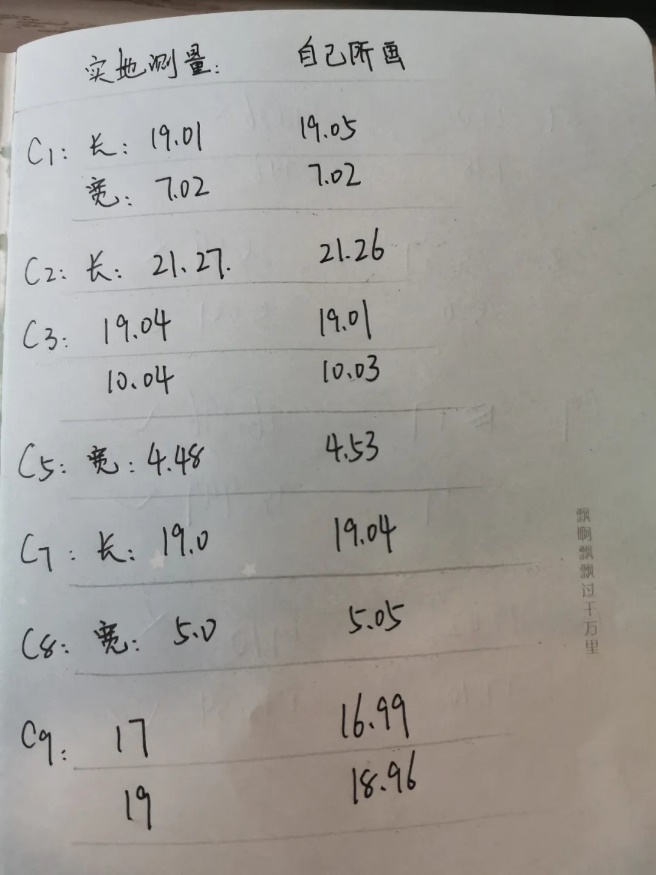 实地测量: 自己所画
C1: 长: 19.01 19.05
宽: 7.02 7.02
C2: 长: 21.27. 21.26
C3: 19.04 19.01
10.04 10.03
C5: 宽: 4.48 4.53
C7: 长: 19.0 19.04
C8: 宽: 5.0 5.05
C9: 17 16.99
19 18.96
飘啊飘飘过千万里